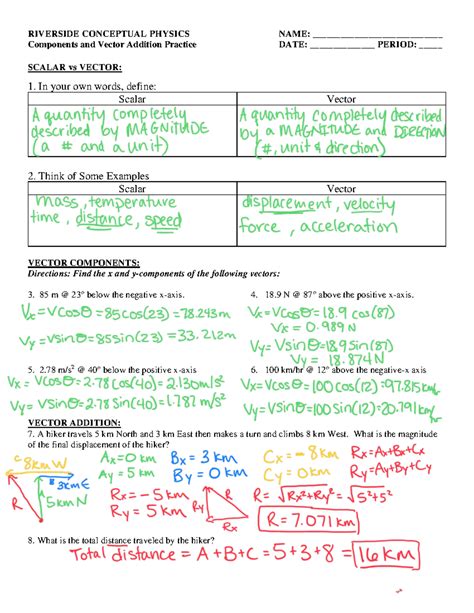 RIVERSIDE CONCEPTUAL PHYSICS NAME: ____________________
Components and Vector Addition Practice DATE: ____________ PERIOD: _____
SCALAR vs VECTOR:
1. In your own words, define:
Scalar Vector
A quantity completely described by MAGNITUDE (a # and a unit)
A quantity completely described by a MAGNITUDE and DIRECTION (#, unit & direction)
2. Think of Some Examples
Scalar Vector
mass, temperature
time, distance, speed
displacement, velocity
force, acceleration
VECTOR COMPONENTS:
Directions: Find the x and y-components of the following vectors:
3. 85 m @ 23° below the negative x-axis.
Vx = Vcosθ = 85cos(23) = 78.243m
Vy = Vsinθ = 85sin(23) = 33.212m
4. 18.9 N @ 87° above the positive x-axis.
Vx = Vcosθ = 18.9 cos(87)
Vx = 0.989 N
Vy = Vsinθ = 18.9sin(87)
Vy = 18.874 N
5. 2.78 m/s² @ 40° below the positive x-axis
Vx = Vcosθ = 2.78 cos(40) = 2.130m/s²
Vy = Vsinθ = 2.78 sin(40) = 1.787 m/s²
6. 100 km/hr @ 12° above the negative-x axis
Vx = Vcosθ = 100 cos(12) = 97.815km/hr
Vy = Vsinθ = 100sin(12) = 20.791km/hr
VECTOR ADDITION:
7. A hiker travels 5 km North and 3 km East then makes a turn and climbs 8 km West. What is the magnitude
of the final displacement of the hiker?
C 8km W
B 3km E
Ax = 0 km Bx = 3 km Cx = -8 km Rx = Ax+Bx+Cx
Ay = 5 km By = 0 km Cy = 0 km Ry = Ay+By+Cy
Rx = -5 km
Ry = 5 km
Ry
Rx
R
R = √Rx²+Ry² = √5²+5²
R = 7.071 km
8. What is the total distance traveled by the hiker?
Total distance = A + B + C = 5 + 3 + 8 = 16 km